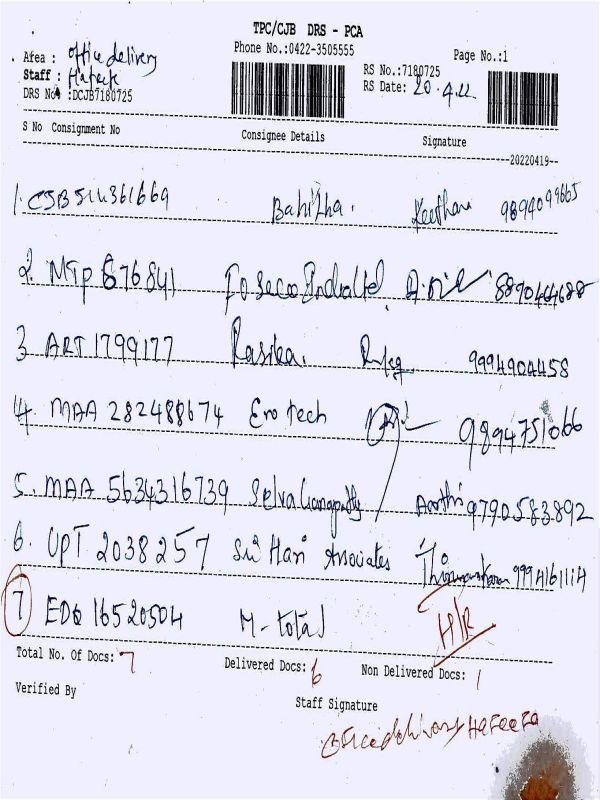 TPC/CJB DRS - PCA
Area : office delivery
Phone No.:0422-3505555
Page No.:1
Staff : Hafeefa
RS No.:7180725
DRS No :DCJB7180725
RS Date: 20.4.22
S No Consignment No Consignee Details Signature
20220419
1. CJB 514361669 Keerthana 9894099665
2. MTP 676841 Foseco India Ltd 8890464688
3 ART 1799177 Rasika. 9994904458
4. MAA 282488674 Erotech 9894751066
5. MAA 5634316739 Selvaganapathy Aarthi 9790583892
6. UPT 2038257 Sri Hari Associates 9994161114
7 EDQ 16520504 M-total H/R
Total No. Of Docs: 7 Delivered Docs: 6 Non Delivered Docs: 1
Verified By Staff Signature
Hafeefa